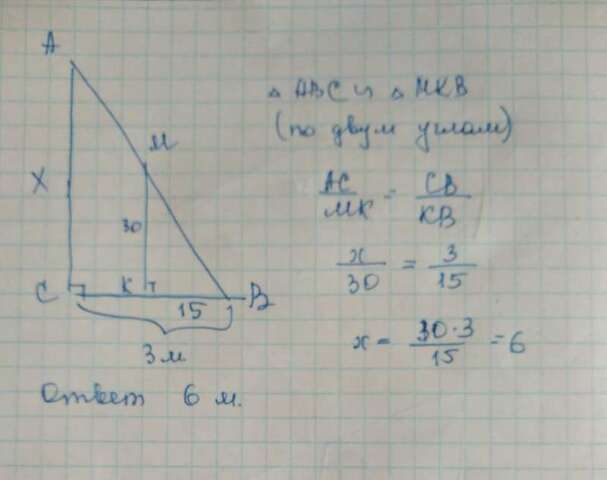 A
M
X
30
C
K
15
B
3 м
△ ABC ∽ △ MKB
(по двум углам)
AC/MK = CB/KB
x/30 = 3/15
x = 30·3/15 = 6
Ответ 6 м.